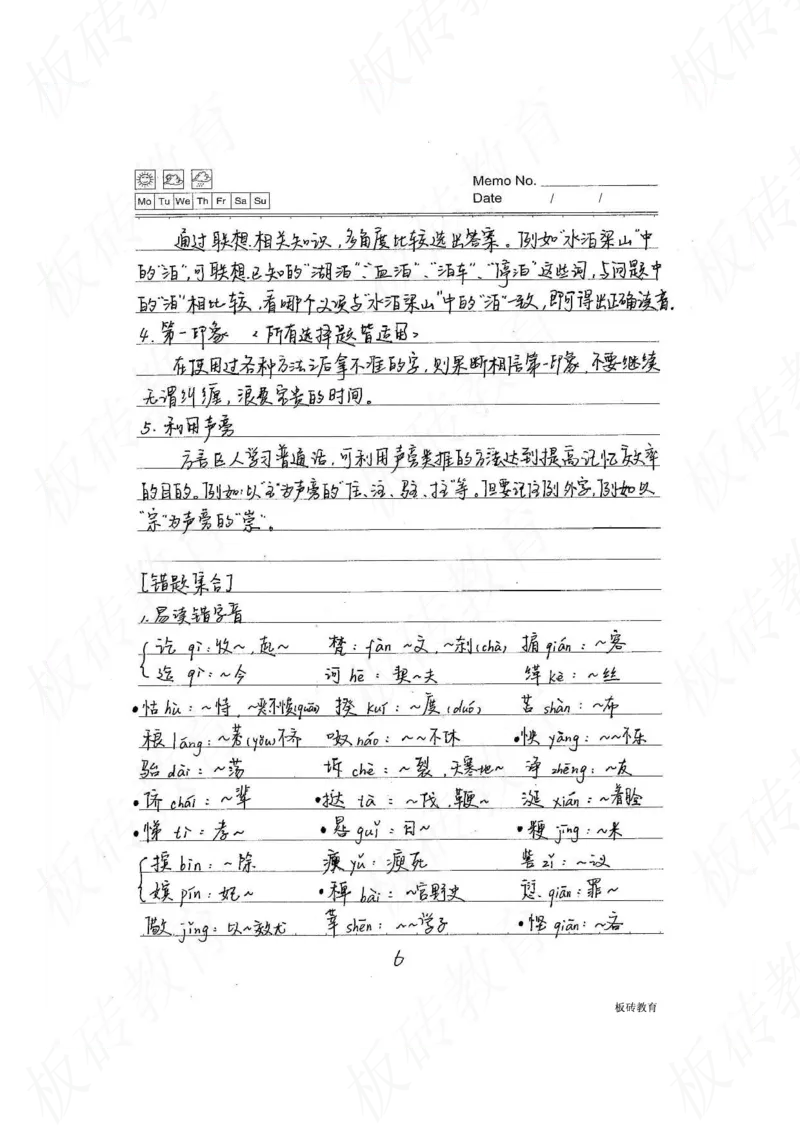 Memo No.
Mo Tu We Th Fr Sa Su
Date / /
通过联想相关知识,多角度比较选出答案。例如"水泊梁山"中
的"泊",可联想已知的"湖泊"、"血泊"、"泊车"、"停泊"这些词,与问题中
的"泊"相比较,看哪个义项与"水泊梁山"中的"泊"一致,即可得出正确读音.
4. 第一印象 <所有选择题皆适用>
在使用过各种方法之后拿不准的字,则果断相信第一印象,不要继续
无谓纠缠,浪费宝贵的时间。
5. 利用声旁
方言区人学习普通话,可利用声旁类推的方法达到提高记忆效率
的目的。例如:以"主"为声旁的"住、注、驻、拄"等。但要记住例外字,例如以
"宗"为声旁的"崇"。
[错题集合]
1. 易读错字音
讫 qì:收~,起~ 梵:fàn ~文,~刹(chà) 掮 qián:~客
迄 qì:~今 诃 hē:契~夫 缂 kè:~丝
•怙 hù:~恃,~恶不悛(quān) 揆 kuí:~度(duó) 苫 shàn:~布
稂 láng:~莠(yǒu)不齐 呶 náo:~~不休 •怏 yàng:~~不乐
骀 dài:~荡 坼 chè:~裂,天寒地~ 诤 zhèng:~友
•侪 chái:~辈 •挞 tà:~伐,鞭~ 涎 xián:~着脸
•悌 tì:孝~ •晷 guǐ:日~ •粳 jīng:~米
摈 bìn:~除 瘐 yǔ:瘐死 訾 zǐ:~议
嫔 pín:妃~ •稗 bài:~官野史 愆 qiān:罪~
儆 jǐng:以~效尤 莘 shēn:~~学子 •悭 qiān:~吝
6
板砖教育